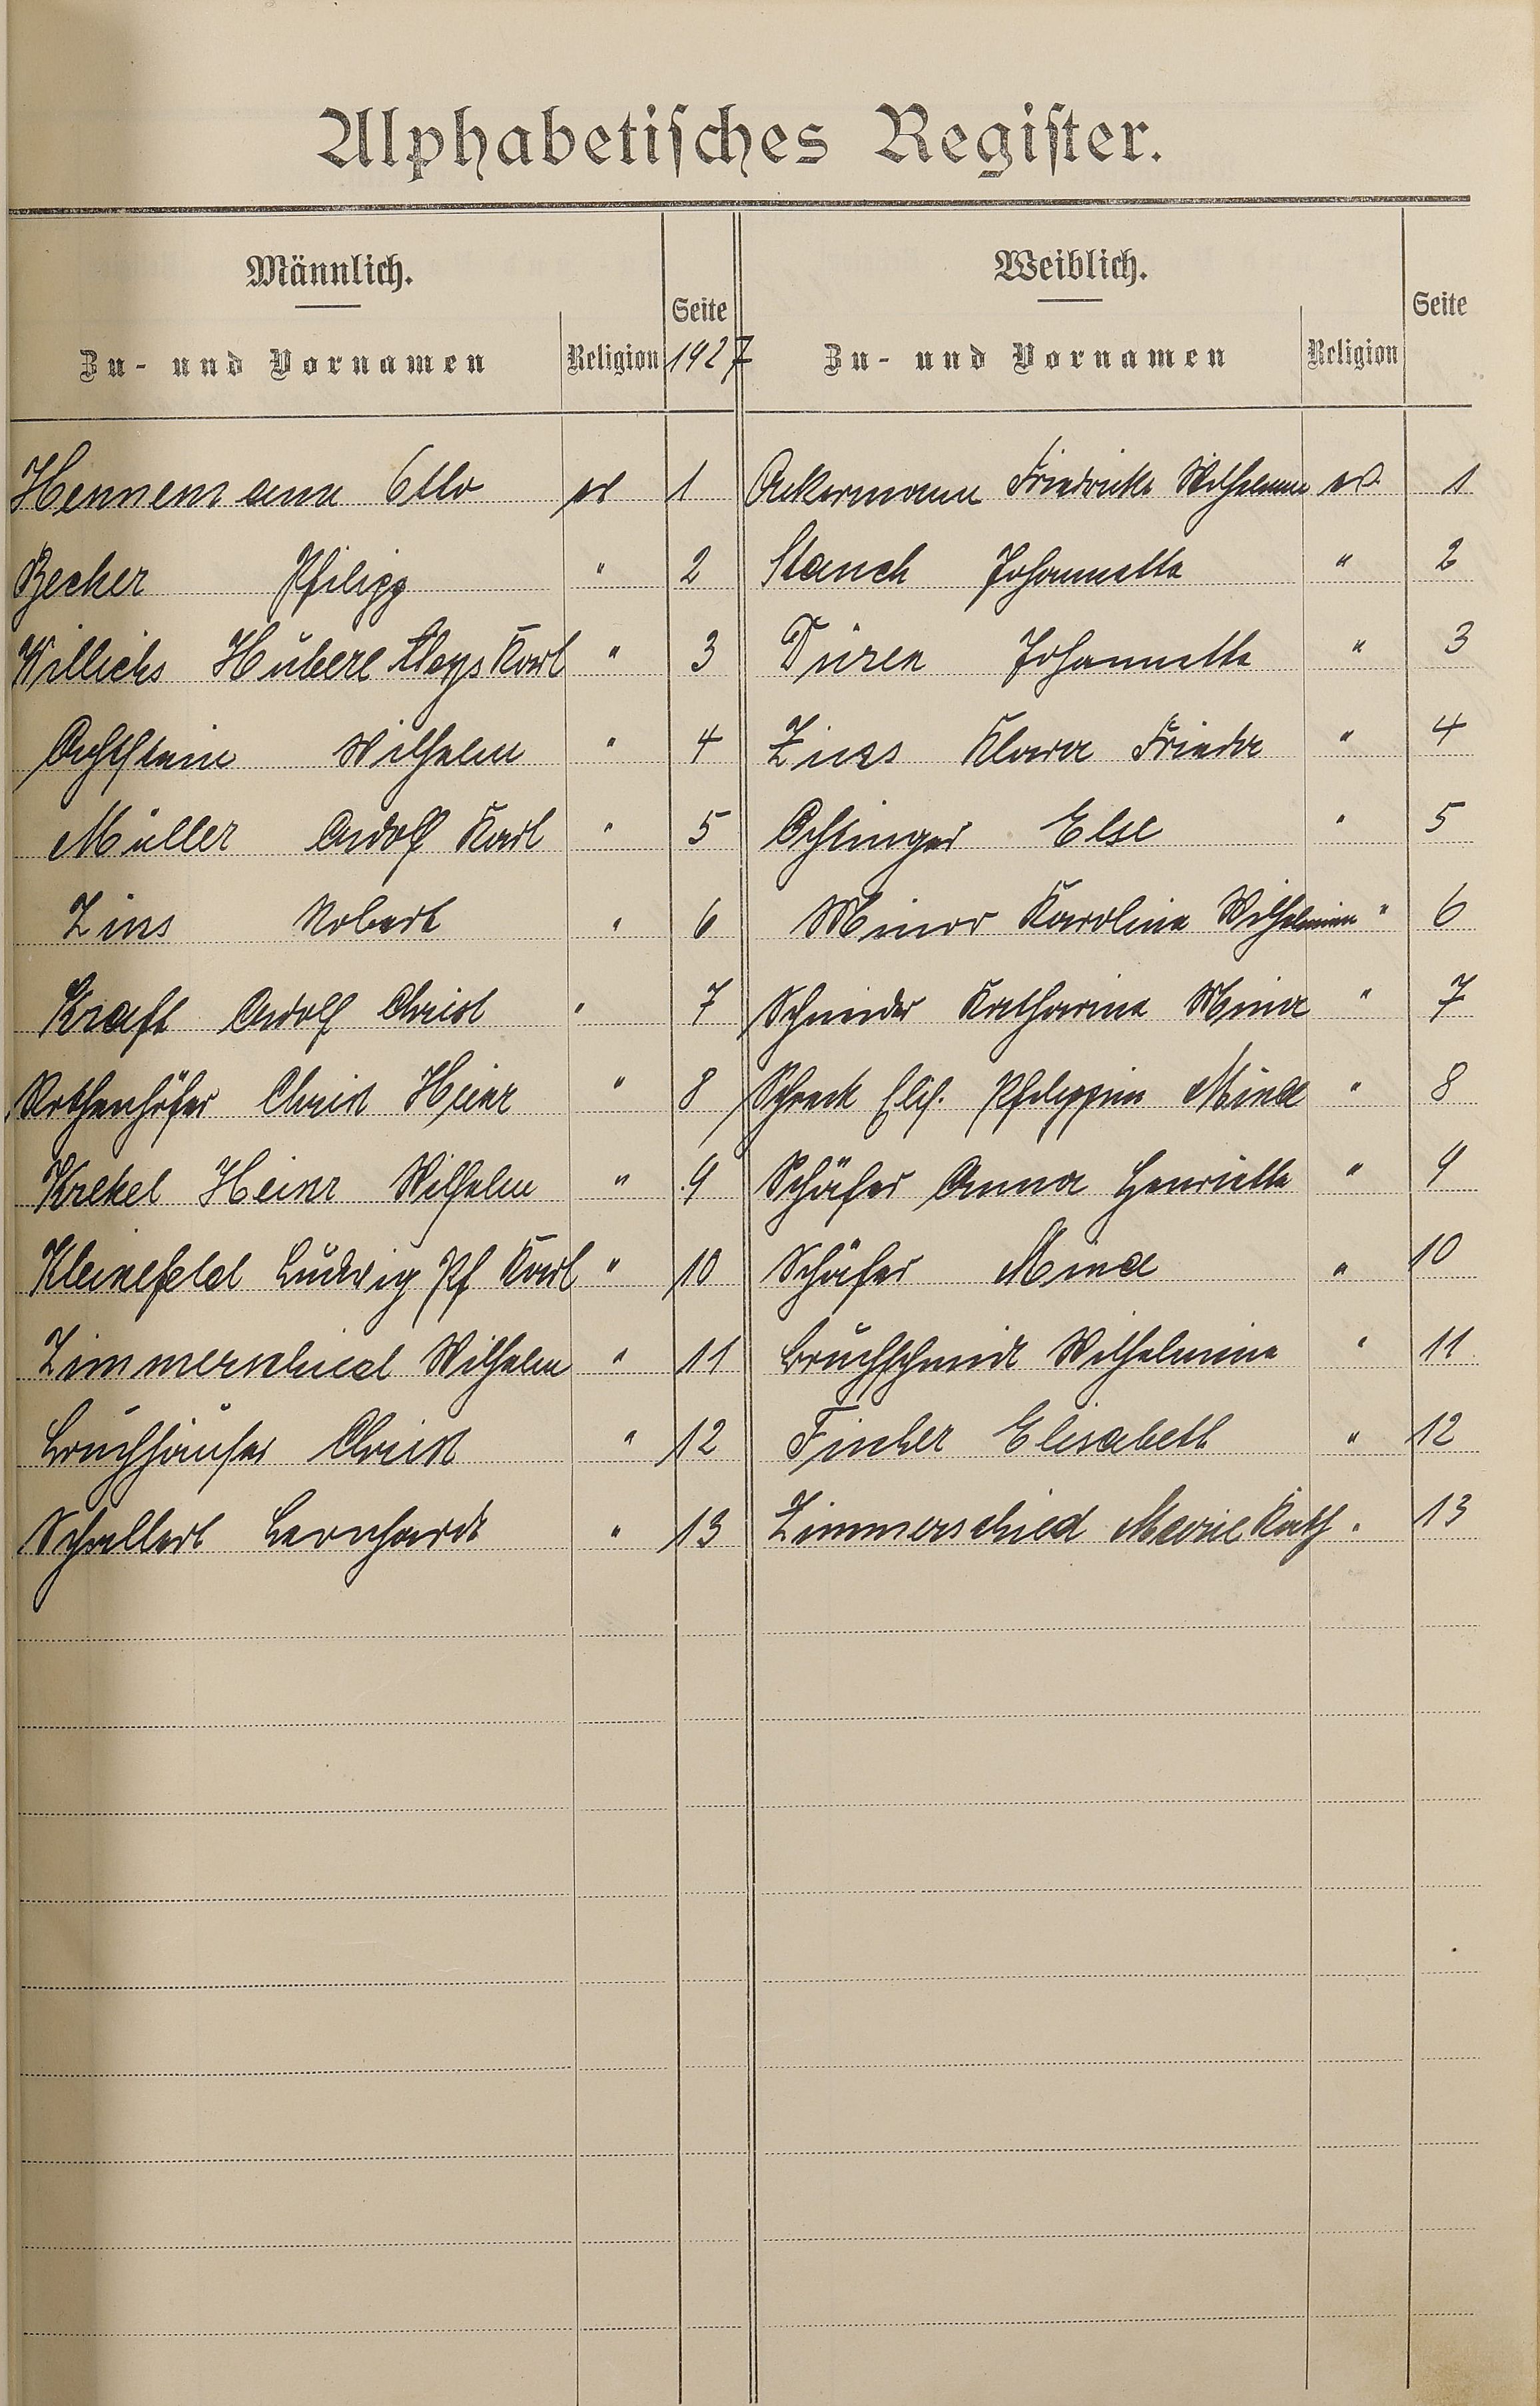 Alphabetisches Register.
Männlich. Weiblich.
Seite Seite
Zu- und Vornamen Religion 1927 Zu- und Vornamen Religion
Hennemann Otto ev 1 Ackermann Friederike Wilhelmine ev. 1
Becker Philipp " 2 Stauch Johannette " 2
Willichs Hubert Aloys Karl " 3 Düren Johannette " 3
Achstein Wilhelm " 4 Zins Klara Frieda " 4
Müller Adolf Karl " 5 Else " 5
Zins Robert " 6 Minor Karoline Wilhelmine " 6
Kraft Adolf Christ " 7 Schneider Katharine Mina " 7
Rothenhöfer Christ Heinr " 8 Schreck Elis. Philippine Mina " 8
Krekel Heinr Wilhelm " 9 Schäfer Anna Henriette " 9
Kleinefeld Ludwig Ph Karl " 10 Schäfer Mina " 10
Zimmerschied Wilhelm " 11 Bruchschmidt Wilhelmine " 11
Bruchhäuser Christ " 12 Fischer Elisabeth " 12
Schallert Bernhardt " 13 Zimmerschied Marie Kath " 13